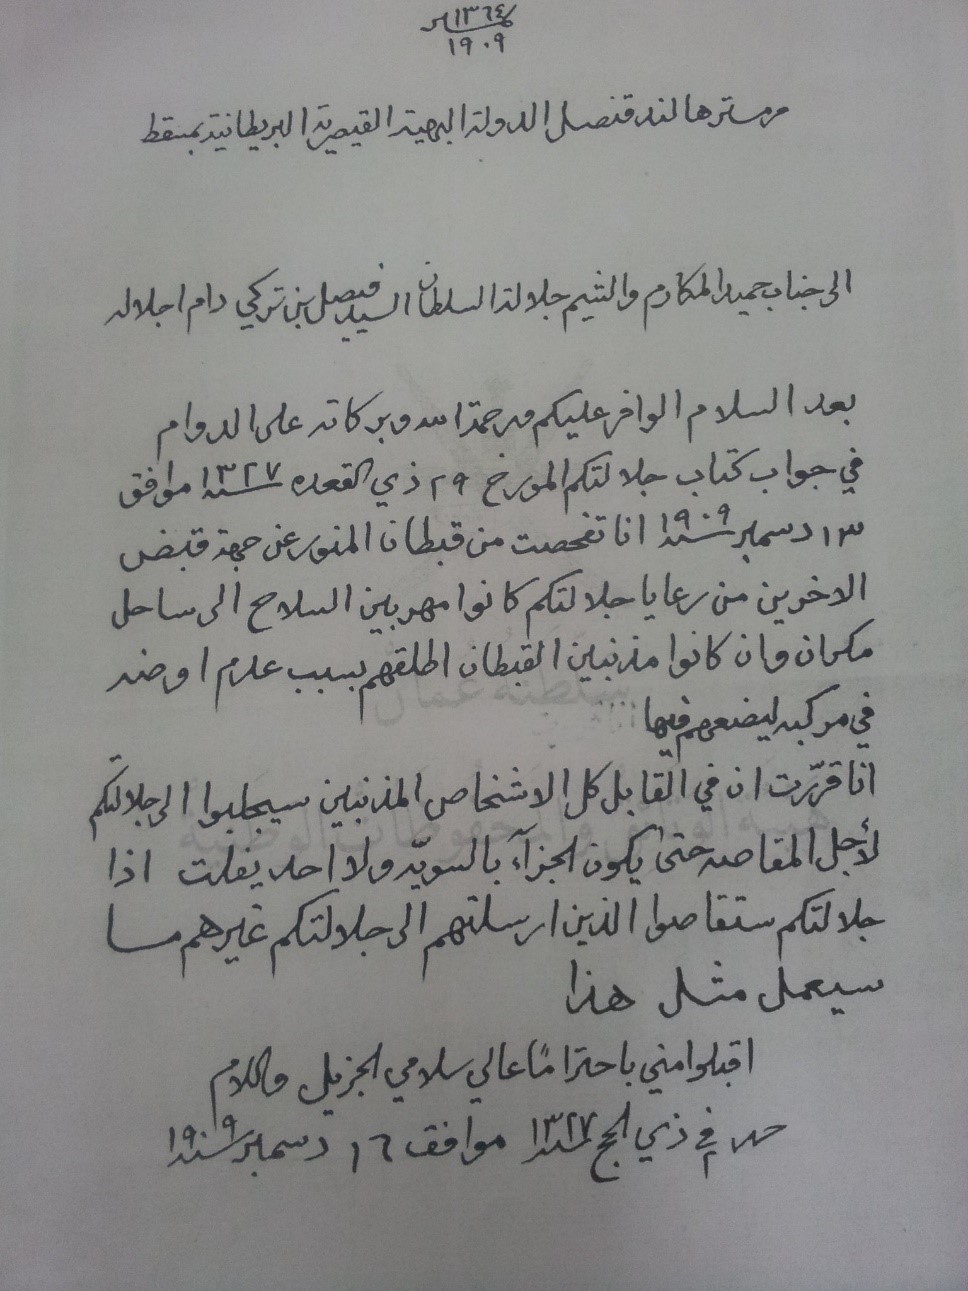 ١٣٦٤
١٩٠٩
من مستر هالند قنصل الدولة البهية القيصرية البريطانية بمسقط
الى جناب حميد المكارم والشيم جلالة السلطان السيد فيصل بن تركي دام اجلاله
بعد السلام الوافر عليكم ورحمة الله وبركاته على الدوام
في جواب كتاب جلالتكم المورخ ٢٩ ذي القعده سنة ١٣٢٧ موافق
١٣ دسمبر سنة ١٩٠٩ انا تفحصت من قبطان المنور عن جهة قبض
الاخرين من رعايا جلالتكم كانوا مهربين السلاح الى ساحل
مكران وان كانوا مذنبين القبطان اطلقهم بسبب عدم اوضه
في مركبه ليضعهم فيها
انا قرّرت ان في القابل كل الاشخاص المذنبين سيجلبوا الى جلالتكم
لأجل المقاصه حتى يكون الجزآء بالسويّه ولا احد يفلت اذا
جلالتكم ستقاصوا الذين ارسلتهم الى جلالتكم غيرهم ما
سيعمل مثل هذا
اقبلوا مني باحترامًا عالي سلامي الجزيل والسلام
حرر في ٣ ذي الحج سنة ١٣٢٧ موافق ١٦ دسمبر سنة ١٩٠٩
سلطنة عمان
هيئة الوثائق والمحفوظات الوطنية